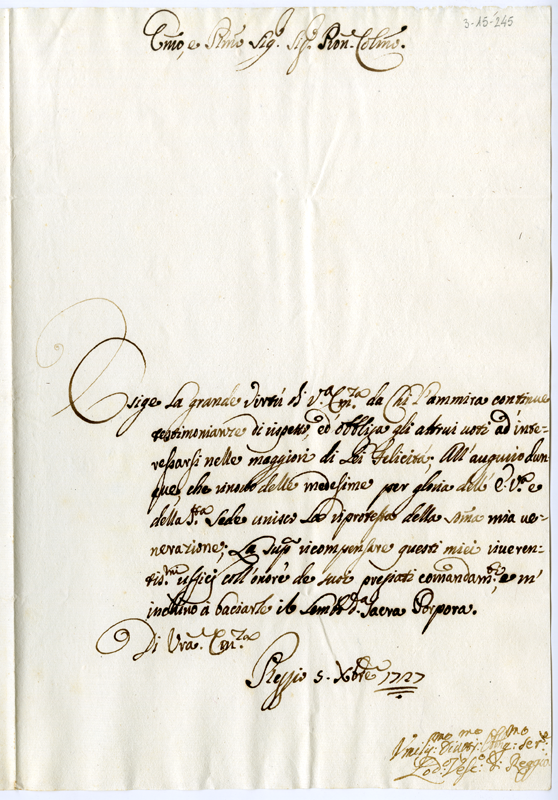 3-15-245
Emo, e Rmo Sigr. Sigr. Pron. Colmo.
Esige la grande Virtù di V.ra Em.za da Chi l'ammira continue
testimonianze di rispetto, ed obbliga gli altrui voti ad inte-
ressarsi nelle maggiori di Lei Felicità; All'augurio dun
que, che rinovo delle medesime per gloria dell' E. V.ra e
della S.ta Sede unisco la riprotesta della somã mia ve-
nerazione; La supco ricompensare questi miei riveren-
tis.mi ufficj coll'onore de suoi pregiati comandam.ti, e m'
inchino à baciarle il Lembo d.a Sacra Porpora.
Di Vra. Em.za
Reggio 5. Xbre 1727
Umilis.mo Divot.mo Obbg.mo Ser.e
Lod. Vesc.o di Reggio